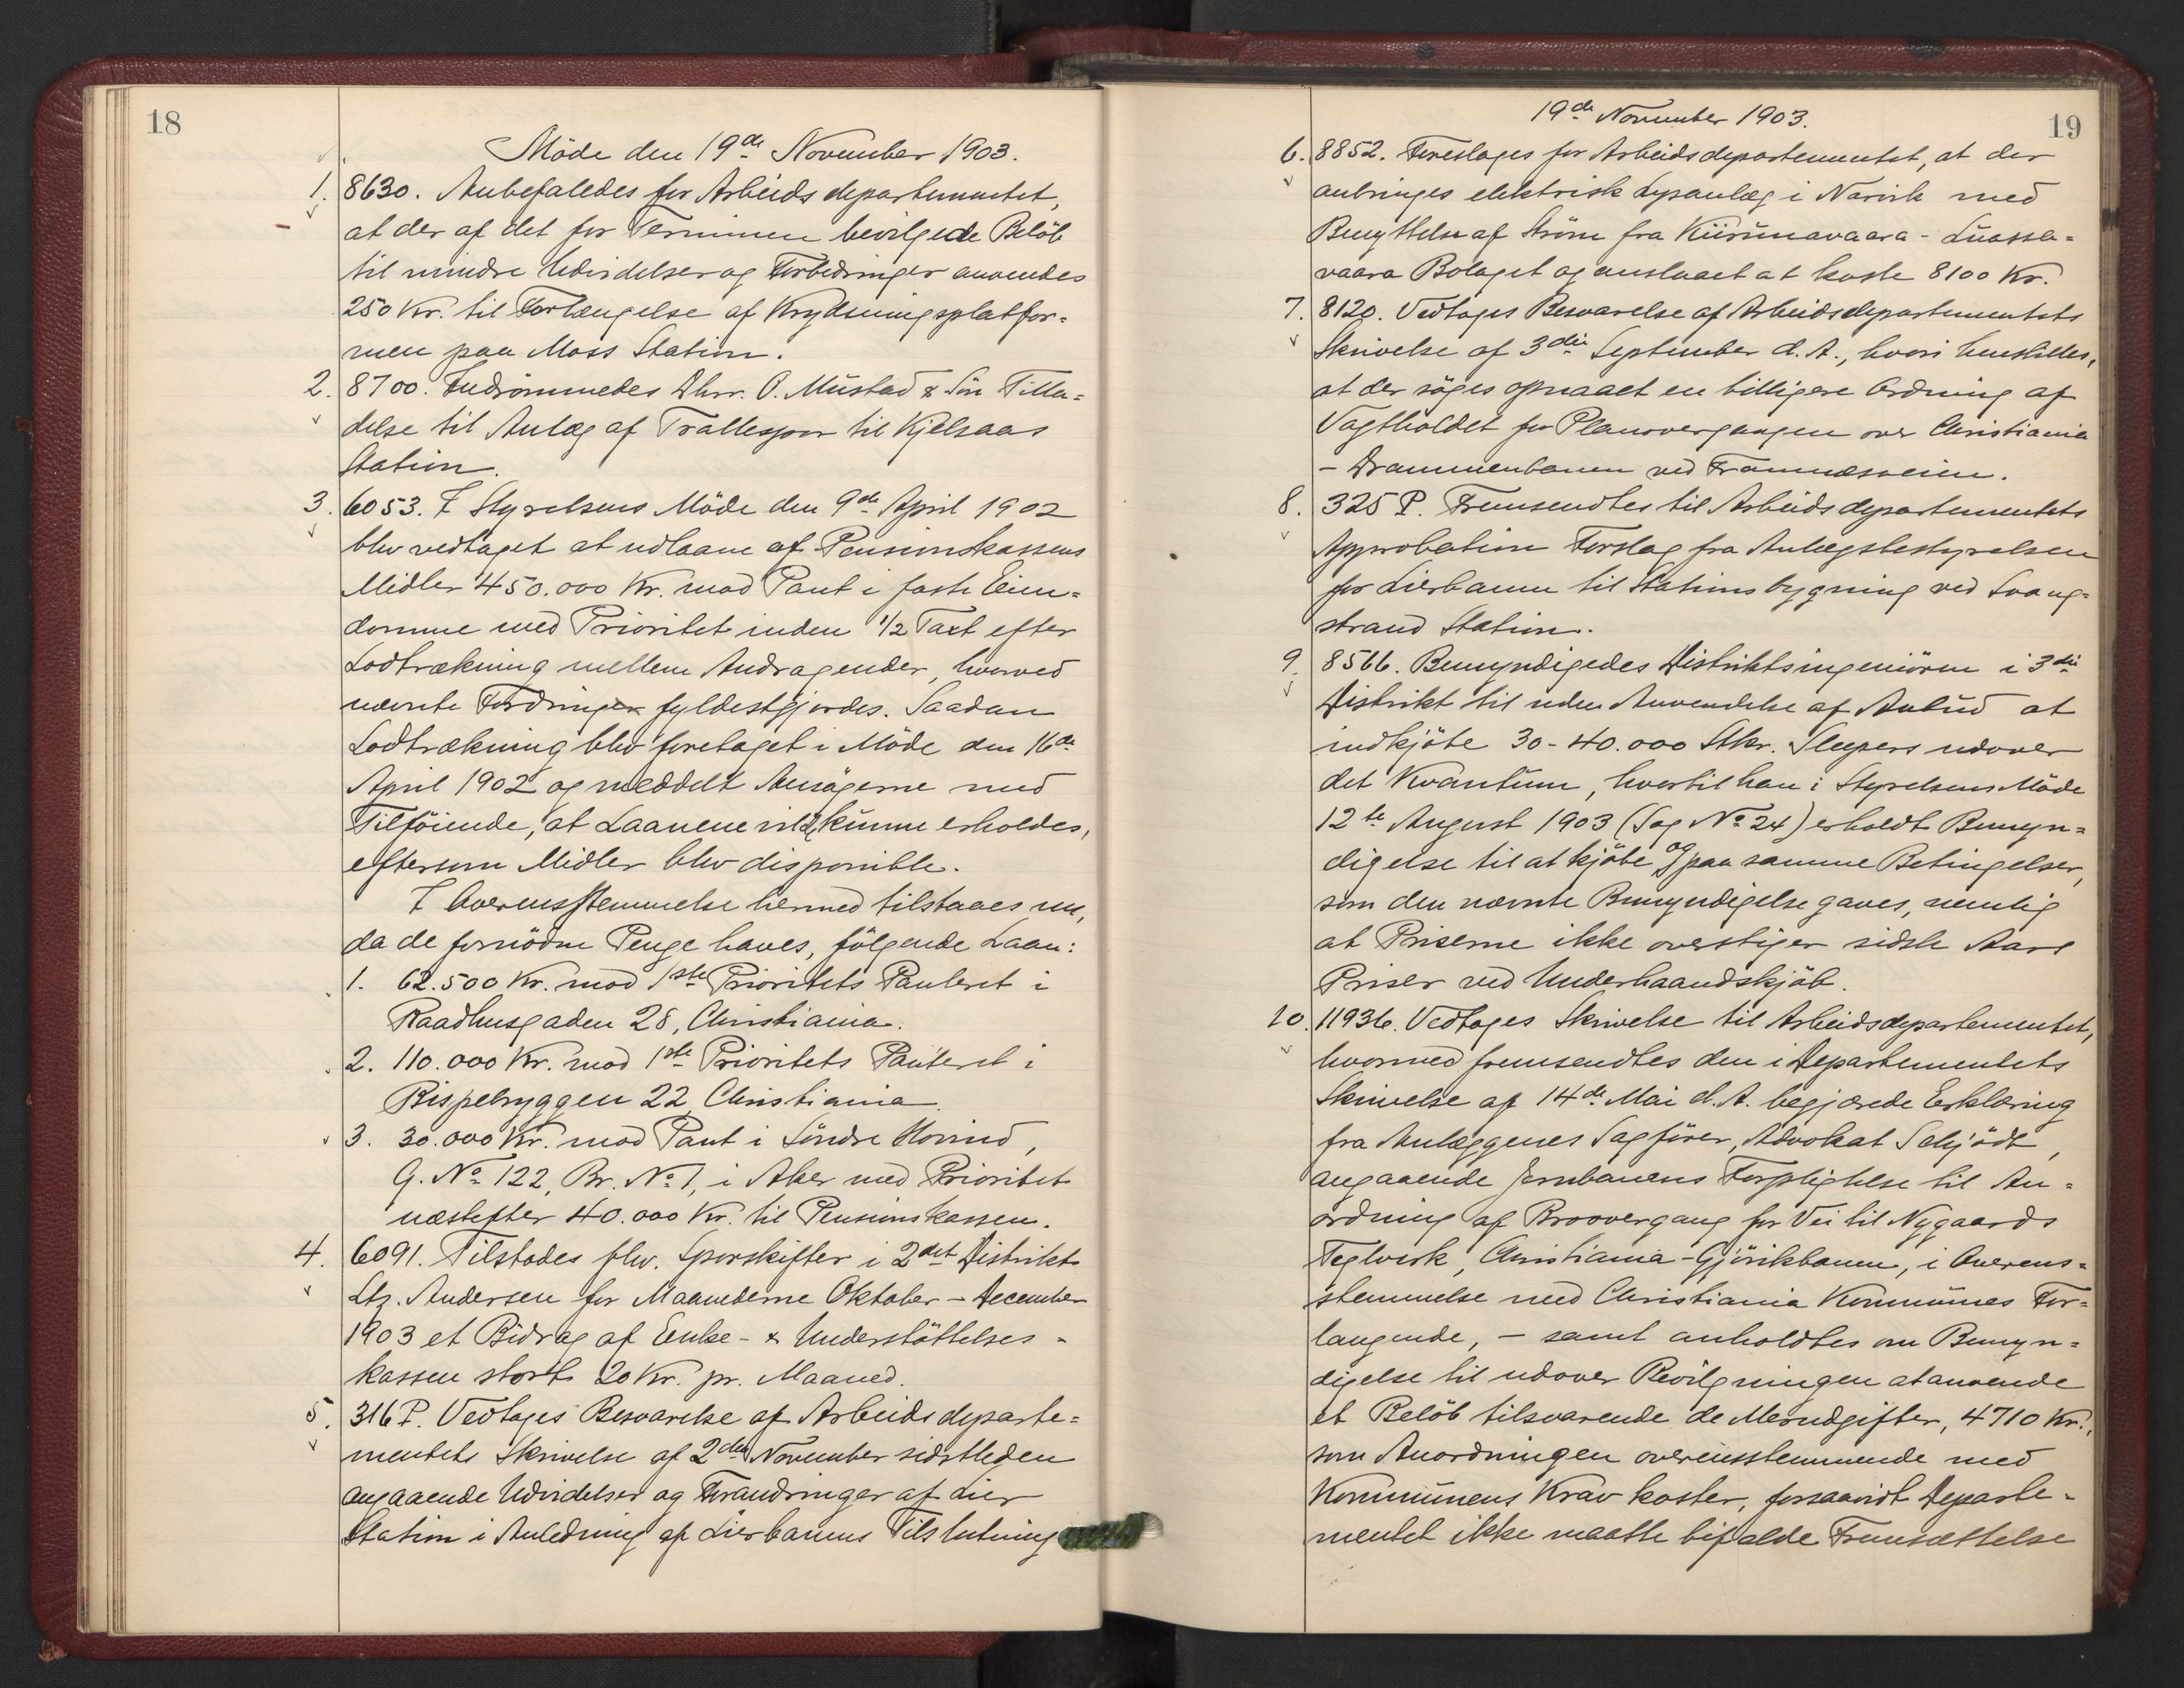 18
Möde den 19de November 1903.
1. 8630. Anbefaledes for Arbeidsdepartementet,
at der af det for Terminen bevilgede Belöb
til mindre Udvidelser og Forbedringer anvendes
250 Kr. til Forlængelse af Krydsningsplatfor-
men paa Moss Station.
2. 8700. Indrömmedes Dhrr. O. Mustad & Sön Tilla-
delse til Anlæg af Trallespor til Kjelsaas
Station.
3. 6053. I Styrelsens Möde den 9de April 1902
blev vedtaget at udlaane af Pensionskassens
Midler 450.000 Kr. mod Pant i faste Eien-
domme med Prioritet inden 1/2 Taxt efter
Lodtrækning mellem Andragender, hvorved
nævnte Fordringer fyldestgjordes. Saadan
Lodtrækning blev foretaget i Möde den 16de
April 1902 og meddelt Ansögerne med
Tilföiende, at Laanene vilde kunne erholdes,
eftersom Midler blev disponible.
I Overensstemmelse hermed tilstaaes nu,
da de fornödne Penge haves, fölgende Laan:
1. 62.500 Kr. mod 1ste Prioritets Panteret i
Raadhusgaden 28, Christiania.
2. 110.000 Kr. mod 1ste Prioritets Panteret i
Bispebryggen 22, Christiania.
3. 30.000 Kr. mod Pant i Söndre Hovind,
G. No 122, Br. No 1, i Aker med Prioritet
næstefter 40.000 Kr. til Pensionskassen.
4. 6091. Tilstodes flv. Sporskifter i 2det Distrikt
Ltz. Andersen for Maanederne Oktober - December
1903 et Bidrag af Enke- & Understöttelses-
kassen stort 20 Kr. pr. Maaned.
5. 316 P. Vedtages Besvarelse af Arbeidsdeparte-
mentets Skrivelse af 2den November sidstleden
angaaende Udvidelser og Forandringer af Lier
Station i Anledning af Lierbanens Tilslutning
19
19de November 1903.
6. 8852. Foreslages for Arbeidsdepartementet, at der
anbringes elektrisk Lysanlæg i Narvik med
Benyttelse af Ström fra Kiirunavaara - Luossa-
vaara Bolaget og anslaaet at koste 8100 Kr.
7. 8120. Vedtages Besvarelse af Arbeidsdepartementets
Skrivelse af 3die September d. A., hvori henstilles,
at der söges opnaaet en billigere Ordning af
Vagtholdet for Planovergangen over Christiania
- Drammenbanen ved Framnæsveien.
8. 325 P. Fremsendtes til Arbeidsdepartementets
Approbation Forslag fra Anlægsbestyrelsen
for Lierbanen til Stationsbygning ved Svang-
strand Station.
9. 8566. Bemyndigedes Distriktsingeniören i 3die
Distrikt til uden Anvendelse af Anbud at
indkjöbe 30-40.000 Stkr. Sleepers udover
det Kvantum, hvortil han i Styrelsens Möde
12te August 1903 (Sag No 24) erholdt Bemyn-
digelse til at kjöbe og paa samme Betingelser,
som den nævnte Bemyndigelse gaves, nemlig
at Priserne ikke overstiger sidste Aars
Priser ved Underhaandskjöb.
10. 11936. Vedtages Skrivelse til Arbeidsdepartementet,
hvormed fremsendtes den i Departementets
Skrivelse af 14de Mai d. A. begjærede Erklæring
fra Anlæggenes Sagförer, Advokat Schjödt,
angaaende Jernbanens Forpligtelse til An-
ordning af Broovergang for Vei til Nygaards
Teglverk, Christiania-Gjövikbanen, i Overens-
stemmelse med Christiania Kommunes For-
langende, - samt anholdtes om Bemyn-
digelse til udover Bevilgningen at anvende
et Belöb tilsvarende de Merudgifter, 4710 Kr.,
som Anordningen overensstemmende med
Kommunens Krav koster, forsaavidt Departe-
mentet ikke maatte bifalde Fremsættelse